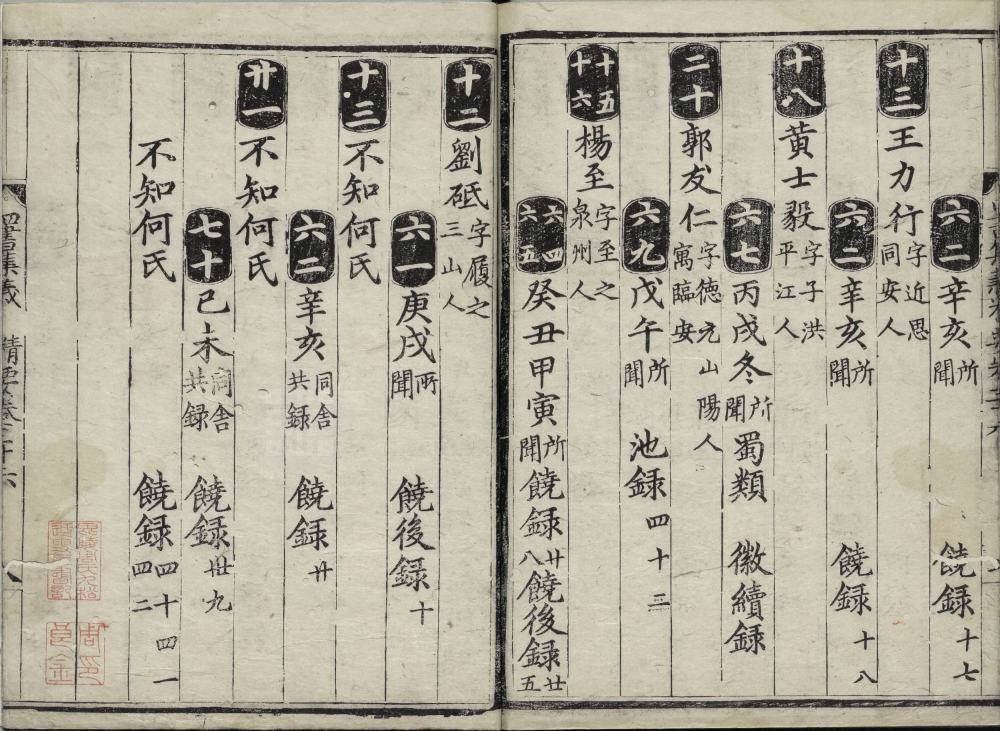 六二 辛亥所聞 饒録十七
十三 王力行字近思同安人
六二 辛亥所聞 饒録十八
十八 黃士毅字子洪平江人
六七 丙戌冬所聞 蜀類 徽續録
二十 郭友仁字德元山陽人寓臨安
六九 戊午所聞 池録四十三
十五十六 楊至字至之泉州人
六四六五 癸丑甲寅所聞 饒録廿八 饒後録廿五
十二 劉砥字履之三山人
六一 庚戌所聞 饒後録十
十三 不知何氏
六二 辛亥同舍共録 饒録卅
廿一 不知何氏
七十 己未同舍共録 饒録卅九
不知何氏 饒録四十四一四二